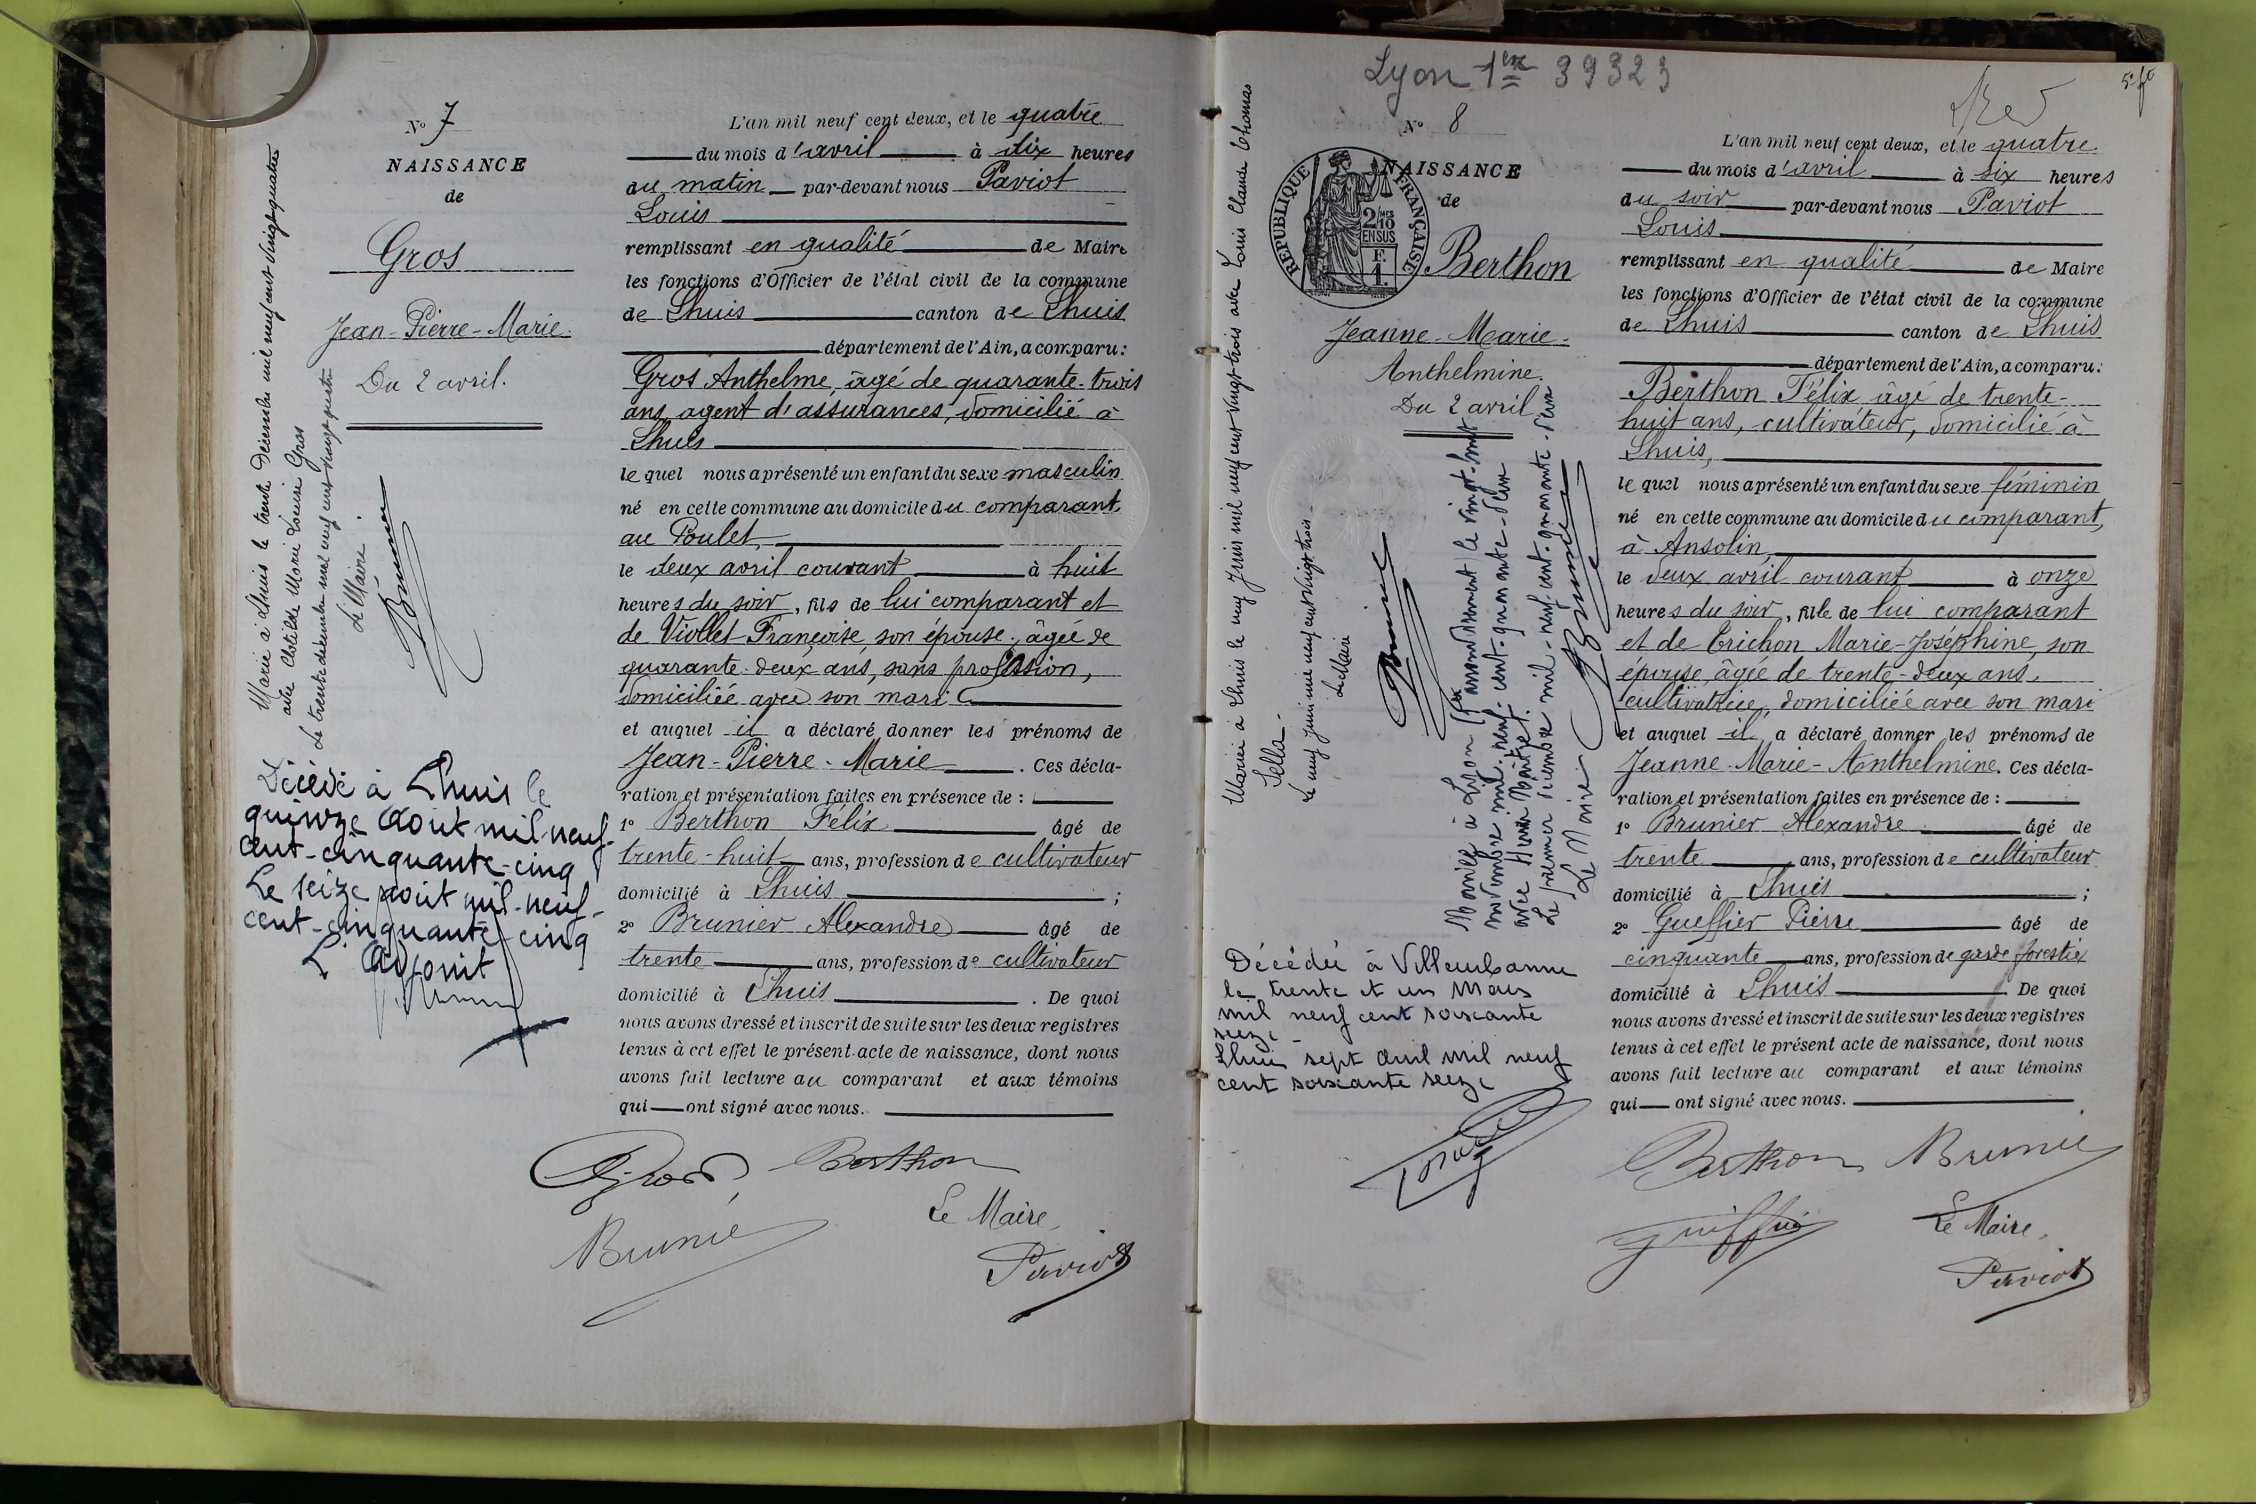 Nº 7
NAISSANCE
de
Gros
Jean-Pierre-Marie.
Du 2 avril.
Marié à Lhuis le trente Décembre mil neuf cent vingt-quatre
avec Clotilde Marie Louise Gros
Le trente décembre mil neuf cent vingt-quatre
Le Maire.
Décédé à Lhuis le
quinze Août mil-neuf-
cent-cinquante-cinq
Le seize août mil-neuf-
cent-cinquante-cinq
L'adjoint
L'an mil neuf cent deux, et le quatre
du mois d'avril à dix heures
du matin par-devant nous Paviot
Louis
remplissant en qualité de Maire
les fonctions d'Officier de l'état civil de la commune
de Lhuis canton de Lhuis
département de l'Ain, a comparu:
Gros Anthelme, âgé de quarante-trois
ans, agent d'assurances, domicilié à
Lhuis
lequel nous a présenté un enfant du sexe masculin
né en cette commune au domicile du comparant,
au Poulet,
le deux avril courant à huit
heures du soir, fils de lui comparant et
de Viollet Françoise, son épouse, âgée de
quarante-deux ans, sans profession,
domiciliée avec son mari
et auquel il a déclaré donner les prénoms de
Jean-Pierre-Marie. Ces décla-
ration et présentation faites en présence de :
1º Berthon Félix âgé de
trente-huit ans, profession de cultivateur
domicilié à Lhuis ;
2º Brunier Alexandre âgé de
trente ans, profession de cultivateur
domicilié à Lhuis. De quoi
nous avons dressé et inscrit de suite sur les deux registres
tenus à cet effet le présent acte de naissance, dont nous
avons fait lecture au comparant et aux témoins
qui ont signé avec nous.
Gros Berthon
Le Maire,
Brunié
Paviot
Lyon 1er 39323
Nº 8
NAISSANCE
de
REPUBLIQUE FRANÇAISE
2/10
EN SUS
F.
1.
Berthon
Jeanne-Marie-
Anthelmine.
Du 2 avril
Mariée à Lhuis le neuf Juin mil neuf cent vingt-trois avec Louis Claude Thomas
Sella
Le neuf Juin mil neuf cent vingt trois
Le Maire
Mariée à Lyon 1er arrondissement le vingt-huit
novembre mil-neuf-cent-quarante-deux
avec Henri
Le premier décembre mil-neuf-cent-quarante-deux
Le Maire
Décédée à Villeurbanne
le trente et un Mars
mil neuf cent soixante
seize
Lhuis sept avril mil neuf
cent soixante seize
L'an mil neuf cent deux, et le quatre
du mois d'avril à six heures
du soir par-devant nous Paviot
Louis
remplissant en qualité de Maire
les fonctions d'Officier de l'état civil de la commune
de Lhuis canton de Lhuis
département de l'Ain, a comparu:
Berthon Félix âgé de trente-
huit ans, cultivateur, domicilié à
Lhuis,
lequel nous a présenté un enfant du sexe féminin
né en cette commune au domicile du comparant,
à Ansolin,
le deux avril courant à onze
heures du soir, fille de lui comparant
et de Trichon Marie-Joséphine, son
épouse, âgée de trente-deux ans,
cultivatrice, domiciliée avec son mari
et auquel il a déclaré donner les prénoms de
Jeanne-Marie-Anthelmine. Ces décla-
ration et présentation faites en présence de :
1º Brunier Alexandre âgé de
trente ans, profession de cultivateur
domicilié à Lhuis ;
2º Gueffier Pierre âgé de
cinquante ans, profession de garde forestier
domicilié à Lhuis De quoi
nous avons dressé et inscrit de suite sur les deux registres
tenus à cet effet le présent acte de naissance, dont nous
avons fait lecture au comparant et aux témoins
qui ont signé avec nous.
Berthon Brunié
Le Maire,
Paviot